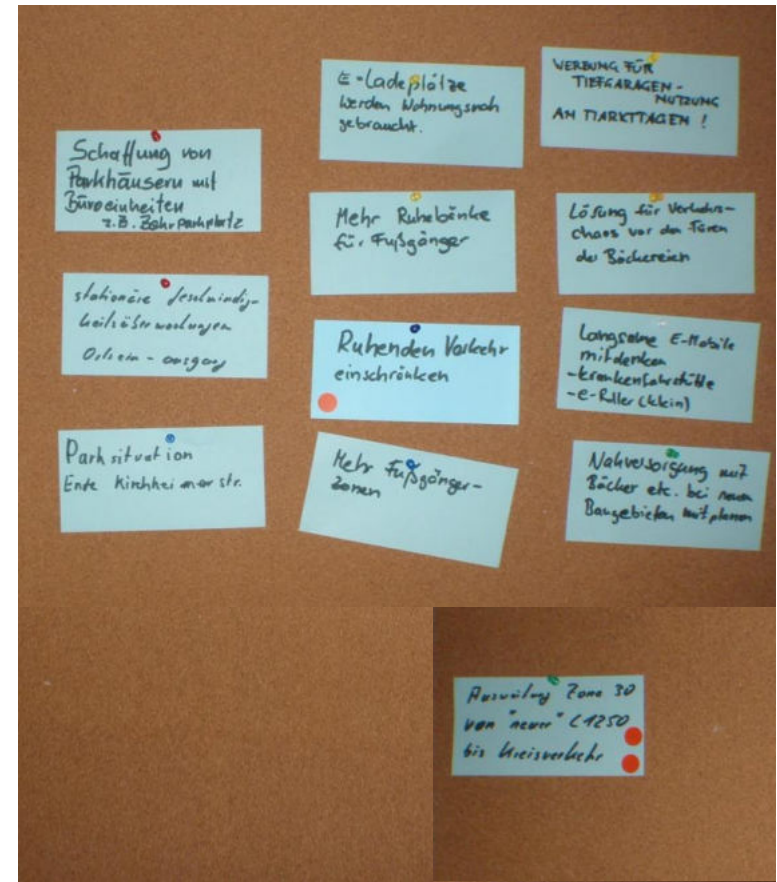 Schaffung von
Parkhäusern mit
Büroeinheiten
z.B. Bahnparkplatz
stationäre Geschwindig-
keitsüberwachungen
Ortsein-ausgang
Parksituation
Ende Kirchheimer str.
E-Ladeplätze
werden Wohnungsnah
gebraucht.
Mehr Ruhebänke
für Fußgänger
Ruhenden Verkehr
einschränken
Mehr Fußgänger-
zonen
WERBUNG FÜR
TIEFGARAGEN-
NUTZUNG
AN MARKTTAGEN !
Lösung für Verkehrs-
chaos vor den Türen
der Bäckereien
Langsame E-Mobile
mitdenken
-Krankenfahrstühle
-e-Roller (klein)
Nahversorgung mit
Bäcker etc. bei neuen
Baugebieten mit planen
Ausweitung Zone 30
von "neuer" L1250
bis Kreisverkehr